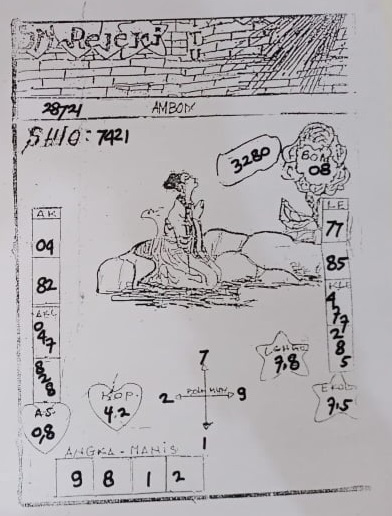 Rejeki
28721 AMBON
SHIO: 7421
3280
BOM
08
AK
04
82
AKL
047
828
A.S
0,8
LE
77
85
KLE
477
285
KOP.
4.2
7
2 9
1
7,8
EKOR
7.5
ANGKA-MANIS
9 8 1 2